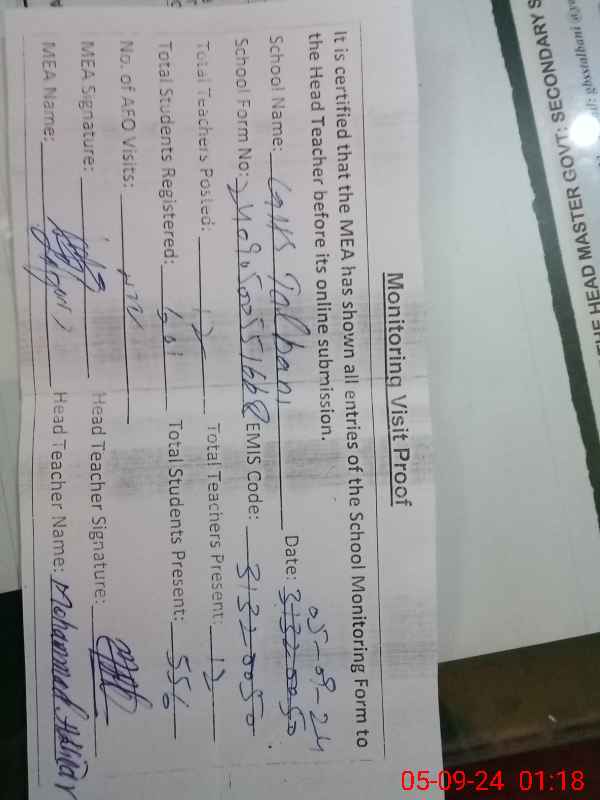 THE HEAD MASTER GOVT: SECONDARY S
Monitoring Visit Proof
It is certified that the MEA has shown all entries of the School Monitoring Form to
the Head Teacher before its online submission.
School Name: GHS Talbani Date: 31320050 05-09-24
School Form No: EMIS Code: 31320050
Total Teachers Posted: 12 Total Teachers Present: 12
Total Students Registered: 601 Total Students Present: 556
No. of AFO Visits:
MEA Signature: Head Teacher Signature:
MEA Name: Head Teacher Name: Mohammad
05-09-24 01:18